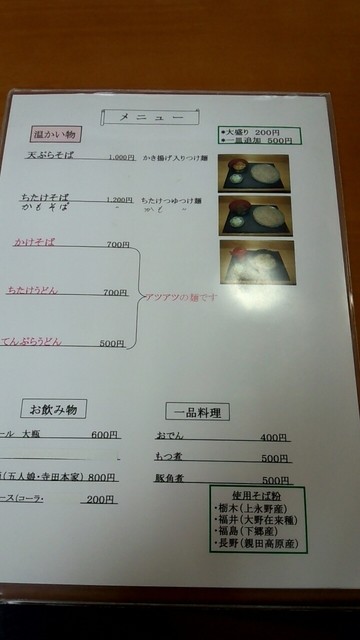 メニュー
温かい物
●大盛り 200円
●一皿追加 500円
天ぷらそば 1,000円 かき揚げ入りつけ麺
ちたけそば 1,200円 ちたけつゆつけ麺
かもそば 〃 かも 〃
かけそば 700円
ちたけうどん 700円
アツアツの麺です
てんぷらうどん 500円
お飲み物
一品料理
ール 大瓶 600円
おでん 400円
もつ煮 500円
(五人娘・寺田本家) 800円
豚角煮 500円
ース(コーラ・ 200円
使用そば粉
・栃木(上永野産)
・福井(大野在来種)
・福島(下郷産)
・長野(親田高原産)